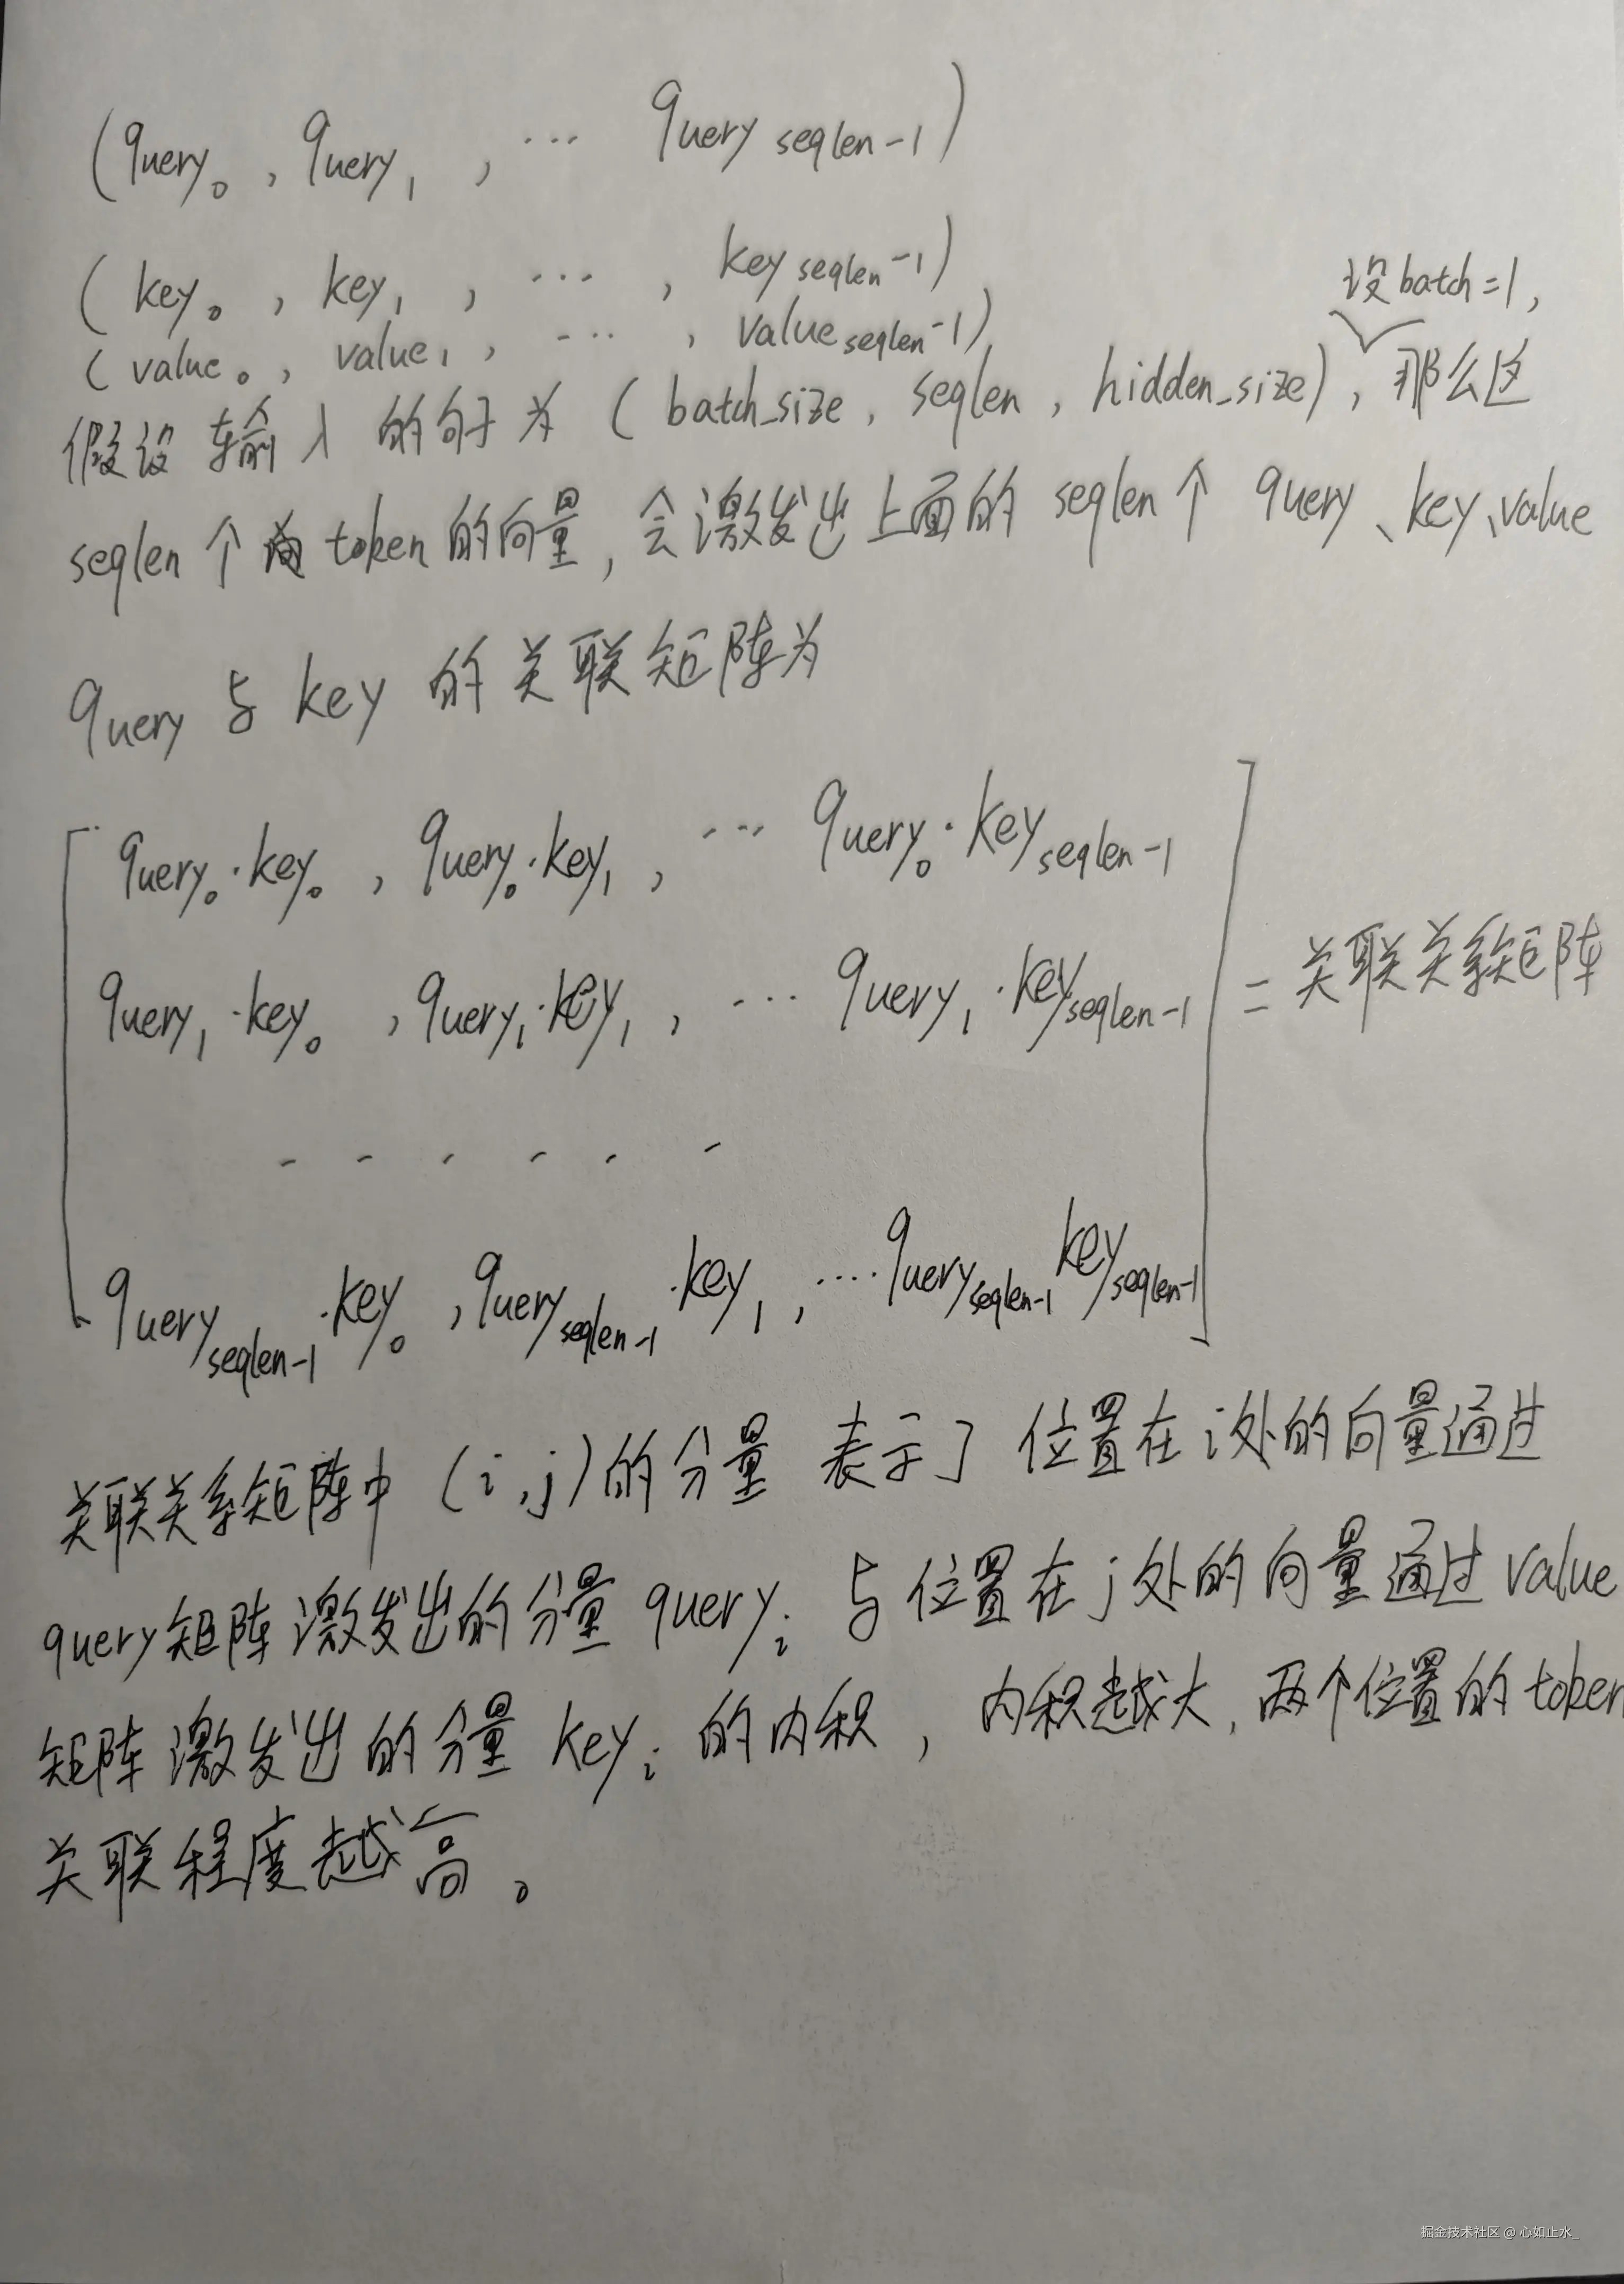 (query₀ , query₁ , ... query seqlen-1)
(key₀ , key₁ , ... , key seqlen-1)
(value₀ , value₁ , ... , value seqlen-1)
设batch=1,
假设输入的句子为 (batch_size, seqlen, hidden_size), 那么这
seqlen个 token的向量, 会激发出上面的 seqlen个 query、key、value
query 与 key 的关联矩阵为
query₀·key₀ , query₀·key₁ , ... query₀·key seqlen-1
query₁·key₀ , query₁·key₁ , ... query₁·key seqlen-1 = 关联关系矩阵
- - - - - -
query seqlen-1·key₀ , query seqlen-1·key₁ , .... query seqlen-1 key seqlen-1
关联关系矩阵中 (i,j)的分量 表示了 位置在i处的向量通过
query矩阵激发出的分量 queryᵢ 与位置在j处的向量通过value
矩阵激发出的分量 keyᵢ 的内积, 内积越大, 两个位置的token
关联程度越高。
掘金技术社区 @ 心如止水_